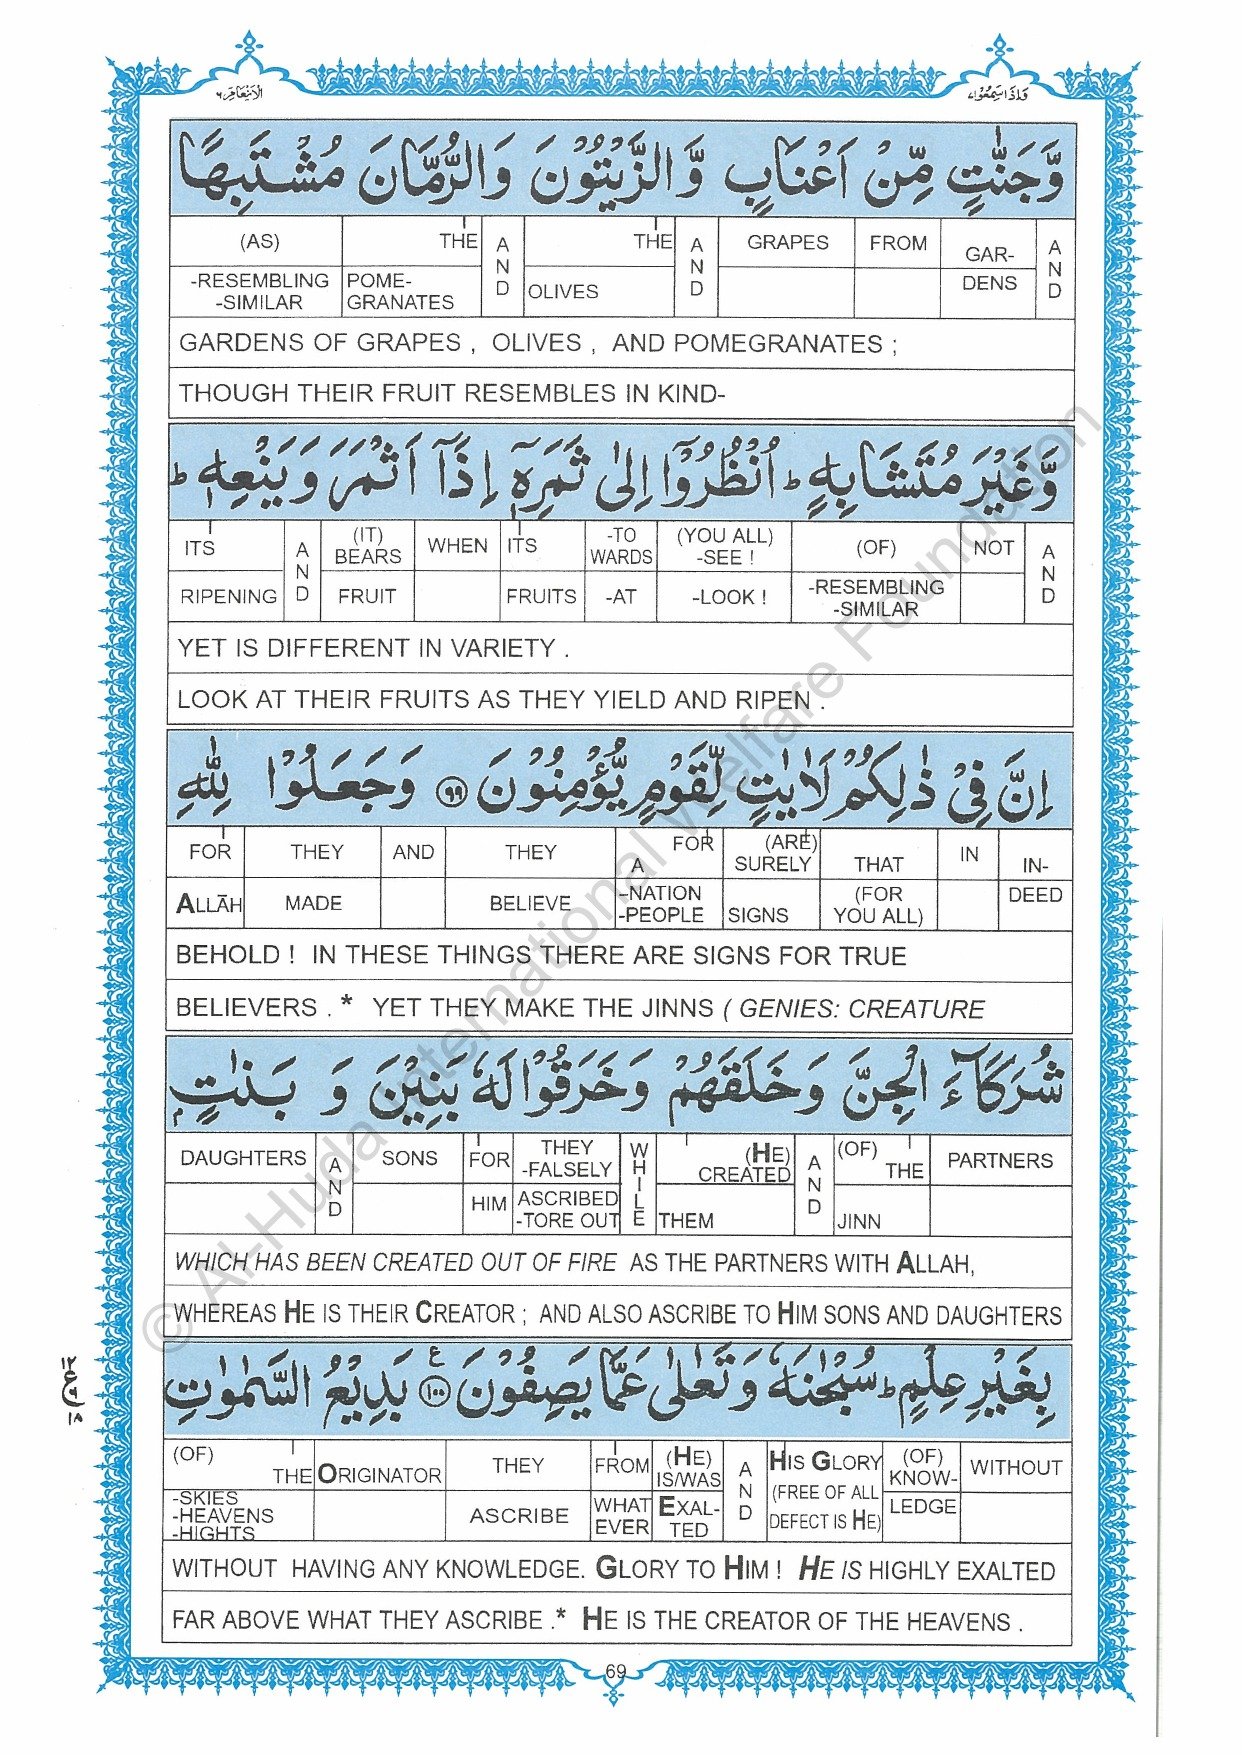 الانعام ٦
واذا سمعوا ٧
وَّجَنّٰتٍ مِّنْ اَعْنَابٍ وَّالزَّيْتُوْنَ وَالرُّمَّانَ مُشْتَبِهًا
(AS) THE A N D THE A N D GRAPES FROM GAR- A N D
-RESEMBLING -SIMILAR POME- GRANATES OLIVES DENS
GARDENS OF GRAPES , OLIVES , AND POMEGRANATES ;
THOUGH THEIR FRUIT RESEMBLES IN KIND-
وَّغَيْرَ مُتَشَابِهٍ ؕ اُنْظُرُوْۤا اِلٰى ثَمَرِهٖۤ اِذَاۤ اَثْمَرَ وَيَنْعِهٖ ؕ
ITS A N D (IT) BEARS WHEN ITS -TO WARDS (YOU ALL) -SEE ! (OF) NOT A N D
RIPENING FRUIT FRUITS -AT -LOOK ! -RESEMBLING -SIMILAR
YET IS DIFFERENT IN VARIETY .
LOOK AT THEIR FRUITS AS THEY YIELD AND RIPEN .
اِنَّ فِيْ ذٰلِكُمْ لَاٰيٰتٍ لِّقَوْمٍ يُّؤْمِنُوْنَ ٩٩ وَجَعَلُوْا لِلّٰهِ
FOR THEY AND THEY A FOR (ARE) SURELY THAT IN IN-
ALLĀH MADE BELIEVE -NATION -PEOPLE SIGNS (FOR YOU ALL) DEED
BEHOLD ! IN THESE THINGS THERE ARE SIGNS FOR TRUE
BELIEVERS . * YET THEY MAKE THE JINNS ( GENIES: CREATURE
شُرَكَآءَ الْجِنَّ وَخَلَقَهُمْ وَخَرَقُوْا لَهٗ بَنِيْنَ وَ بَنٰتٍۭ
DAUGHTERS A N D SONS FOR THEY -FALSELY W H I L E (HE) CREATED A N D (OF) THE PARTNERS
HIM ASCRIBED -TORE OUT THEM JINN
WHICH HAS BEEN CREATED OUT OF FIRE AS THE PARTNERS WITH ALLAH,
WHEREAS HE IS THEIR CREATOR ; AND ALSO ASCRIBE TO HIM SONS AND DAUGHTERS
بِغَيْرِ عِلْمٍ ؕ سُبْحٰنَهٗ وَتَعٰلٰى عَمَّا يَصِفُوْنَ ١٠٠ ع بَدِيْعُ السَّمٰوٰتِ
(OF) THE ORIGINATOR THEY FROM (HE) IS/WAS A N D HIS GLORY (OF) KNOW- WITHOUT
-SKIES -HEAVENS -HIGHTS ASCRIBE WHAT EVER EXAL- TED (FREE OF ALL DEFECT IS HE) LEDGE
WITHOUT HAVING ANY KNOWLEDGE. GLORY TO HIM ! HE IS HIGHLY EXALTED
FAR ABOVE WHAT THEY ASCRIBE .* HE IS THE CREATOR OF THE HEAVENS .
69
© Al-Huda International Welfare Foundation